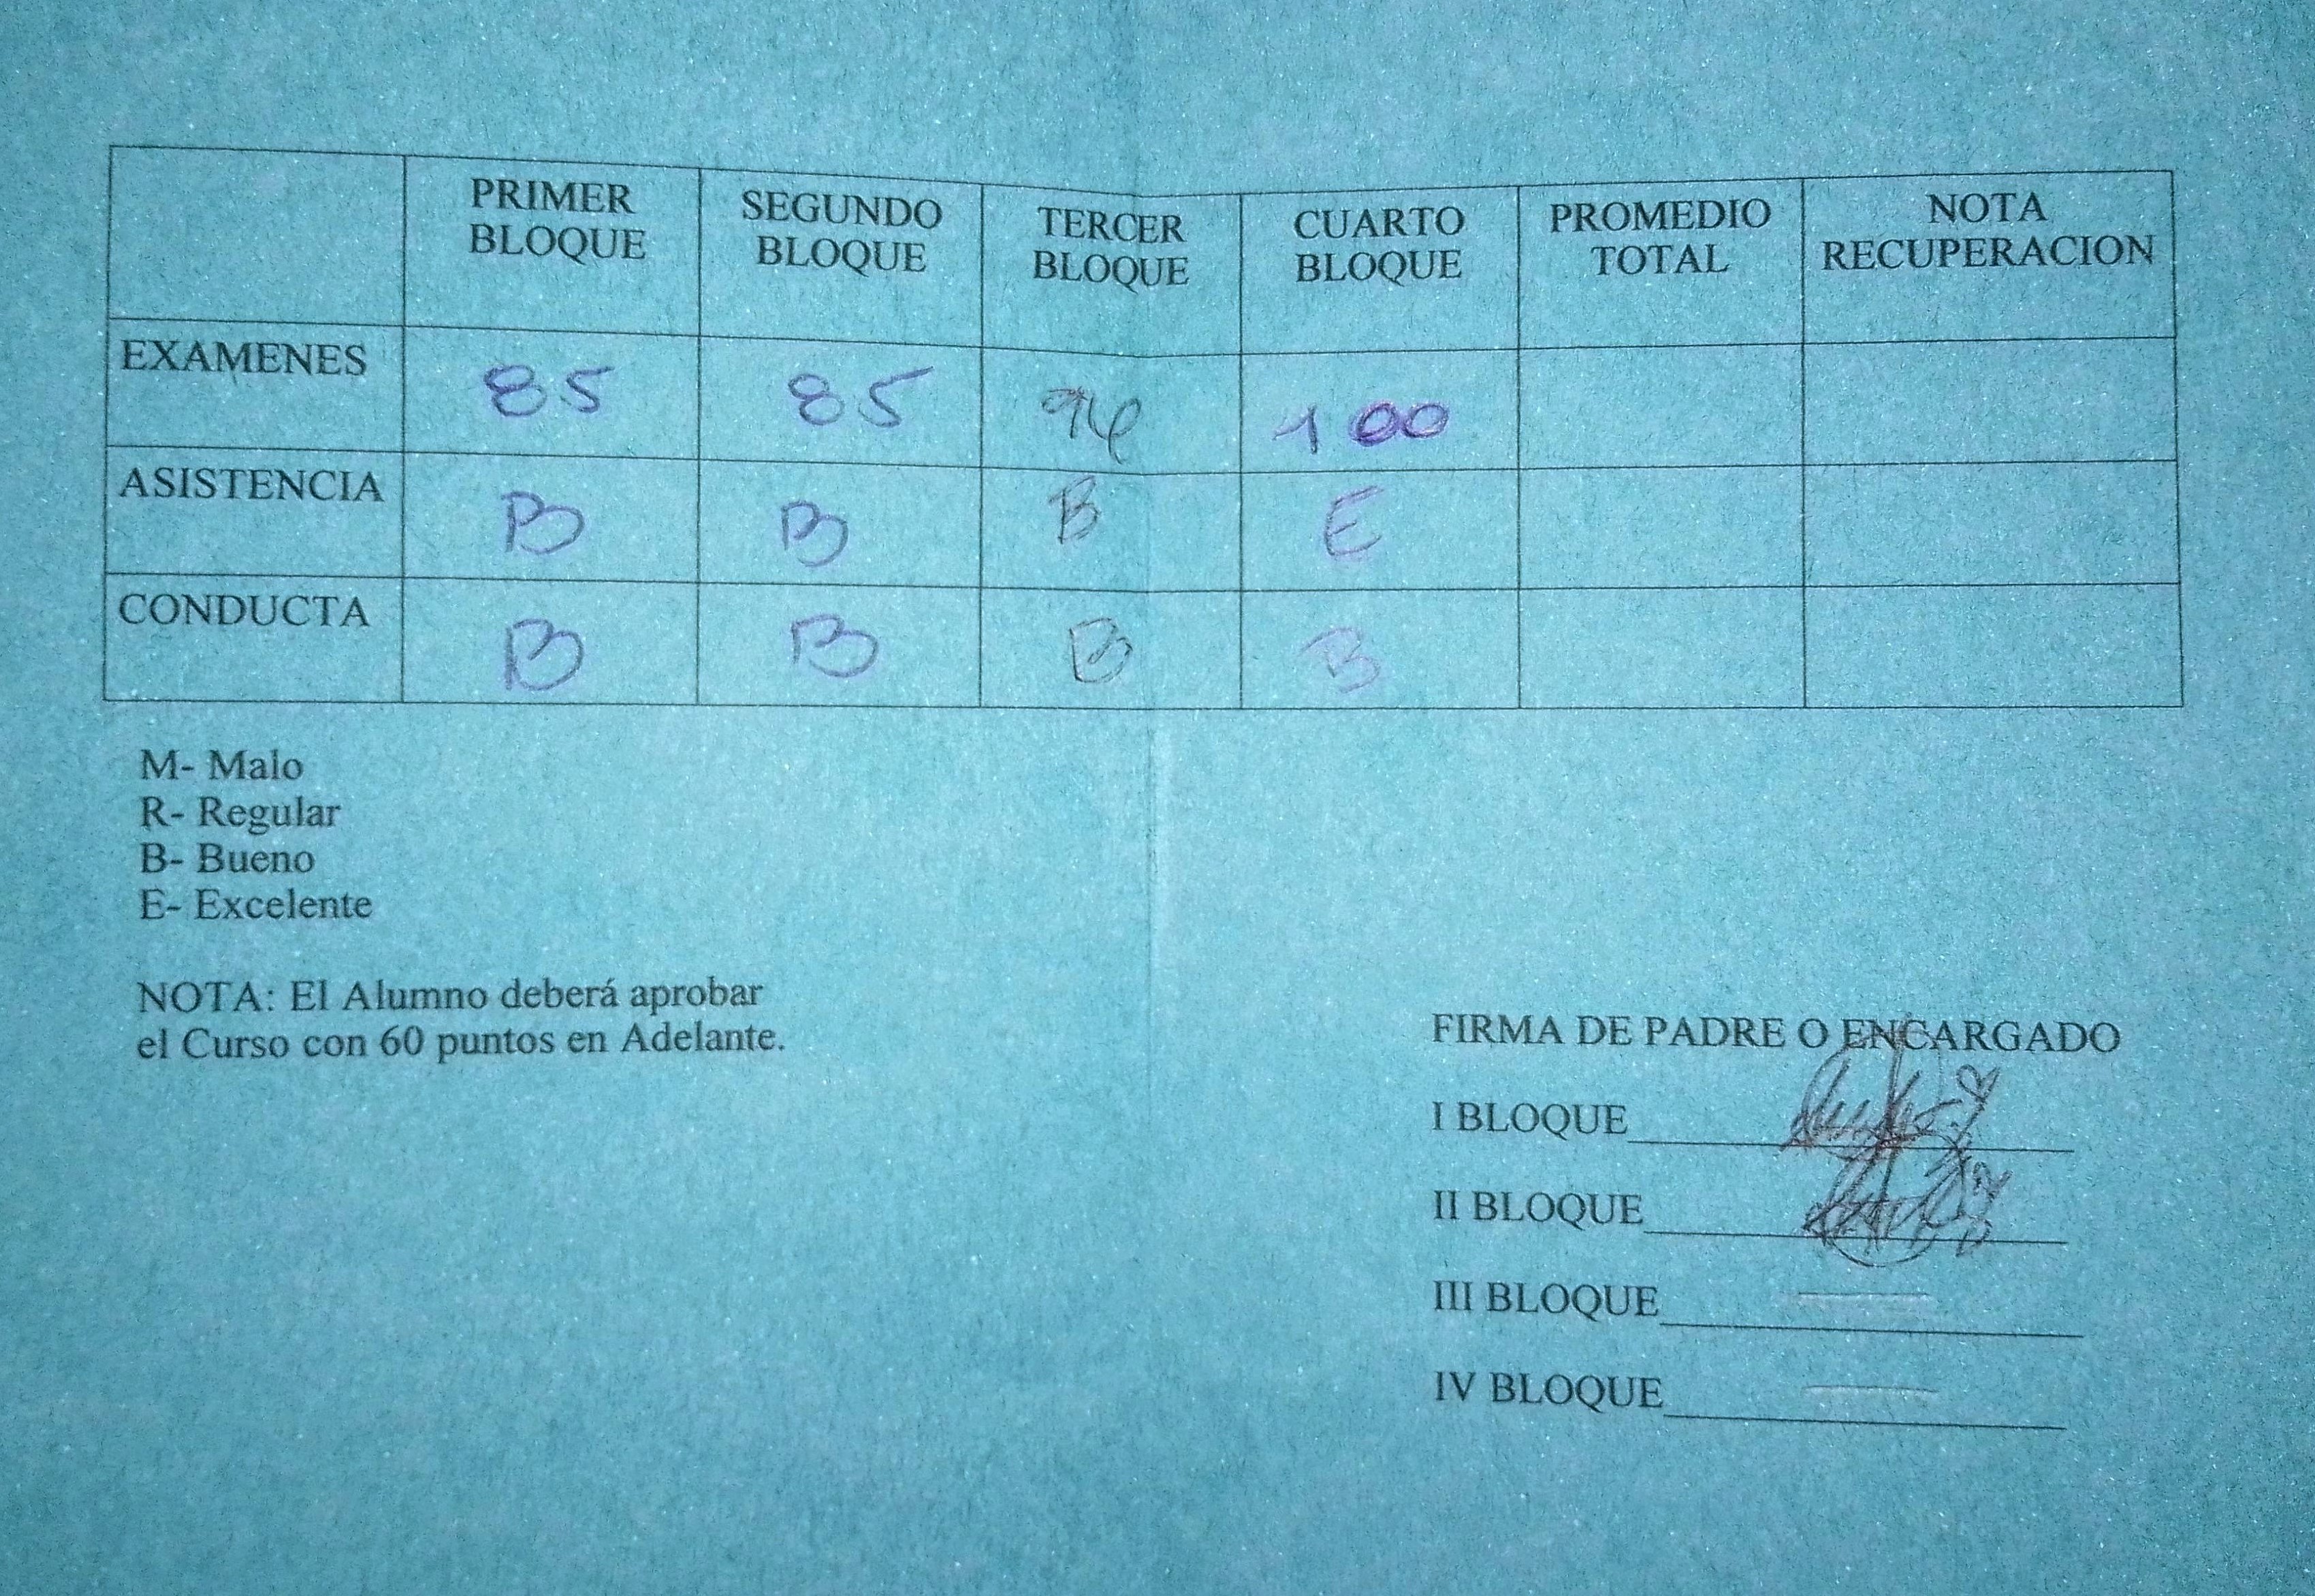 PRIMER BLOQUE SEGUNDO BLOQUE TERCER BLOQUE CUARTO BLOQUE PROMEDIO TOTAL NOTA RECUPERACION
EXAMENES 85 85 94 100
ASISTENCIA B B B E
CONDUCTA B B B B
M- Malo
R- Regular
B- Bueno
E- Excelente
NOTA: El Alumno deberá aprobar
el Curso con 60 puntos en Adelante.
FIRMA DE PADRE O ENCARGADO
I BLOQUE
II BLOQUE
III BLOQUE
IV BLOQUE